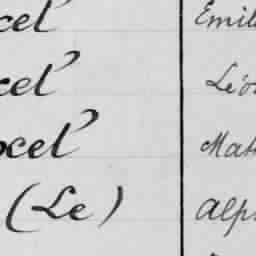 cel Emil
cel Léo
ocel Math
(Le) Alph